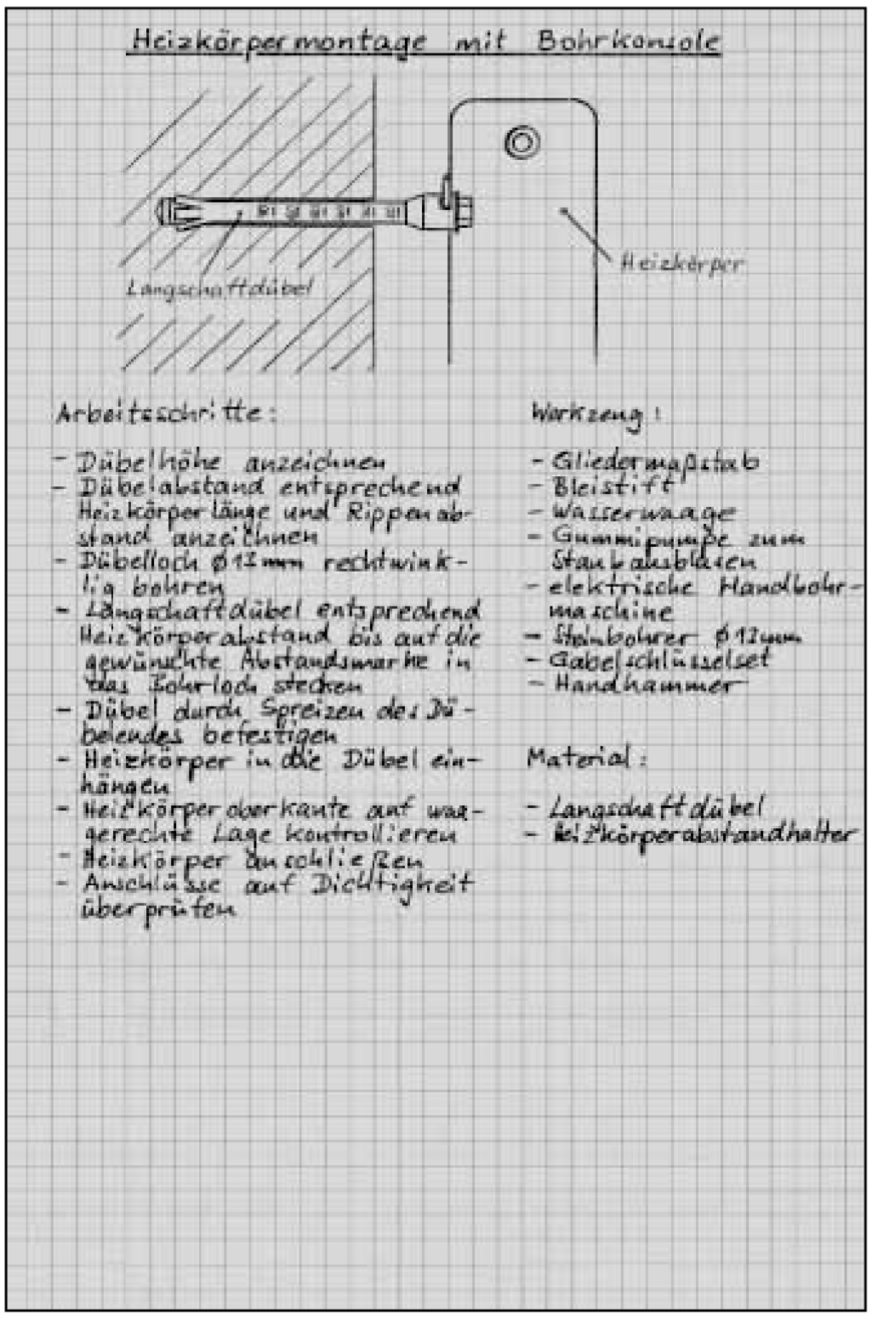 Heizkörpermontage mit Bohrkonsole
Langschaftdübel
Heizkörper
Arbeitsschritte:
- Dübelhöhe anzeichnen
- Dübelabstand entsprechend
Heizkörperlänge und Rippenab-
stand anzeichnen
- Dübelloch ø 12 mm rechtwink-
lig bohren
- Langschaftdübel entsprechend
Heizkörperabstand bis auf die
gewünschte Abstandsmarke in
das Bohrloch stecken
- Dübel durch Spreizen des Dü-
belendes befestigen
- Heizkörper in die Dübel ein-
hängen
- Heizkörperoberkante auf waa-
gerechte Lage kontrollieren
- Heizkörper anschließen
- Anschlüsse auf Dichtigkeit
überprüfen
Werkzeug:
- Gliedermaßstab
- Bleistift
- Wasserwaage
- Gummipumpe zum
Staubausblasen
- elektrische Handbohr-
maschine
- Steinbohrer ø 12 mm
- Gabelschlüsselset
- Handhammer
Material:
- Langschaftdübel
- Heizkörperabstandhalter